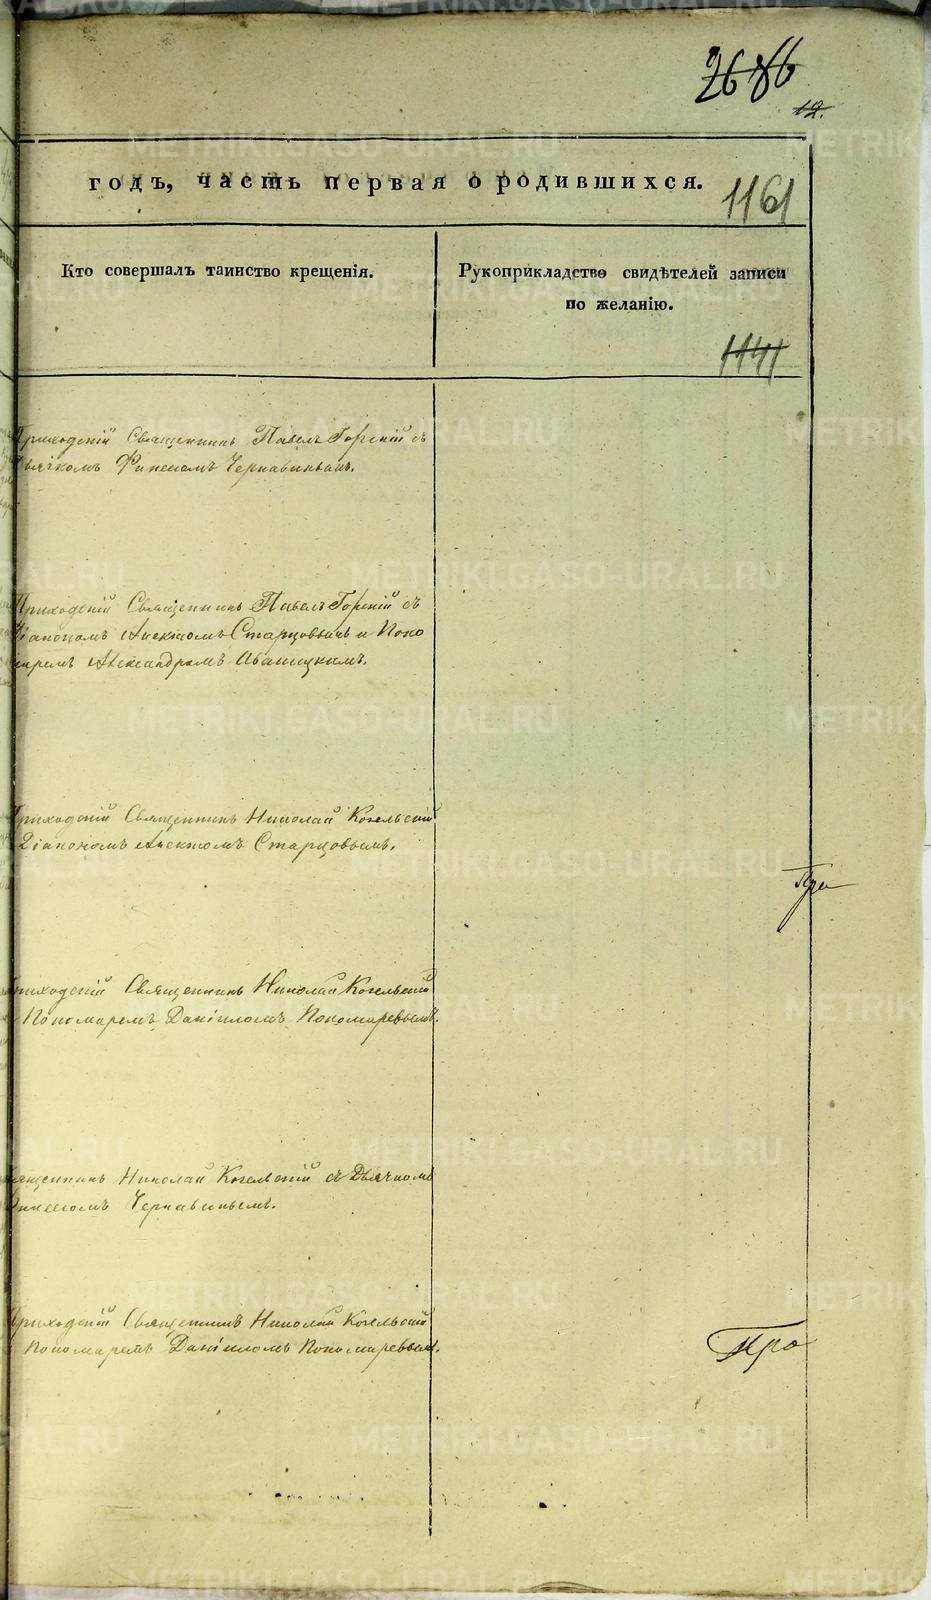 12.
годъ, часть первая о родившихся.
1161
Кто совершалъ таинство крещенія.
Рукоприкладство свидѣтелей записи
по желанію.
1141
Приходскій Священникъ Павелъ Горскій съ
Дьячкомъ Финеесомъ Чернавинымъ.
Приходскій Священникъ Павелъ Горскій съ
Діакономъ Старцовымъ и Поно
маремъ Александромъ Иваницкимъ.
Приходскій Священникъ Николай Когельскій
Діакономъ Старцовымъ.
Про
Приходскій Священникъ Николай Когельскій
Пономаремъ Даніиломъ Пономаревымъ.
Священникъ Николай Когельскій съ Дьячкомъ
Финеесомъ Чернавинымъ.
Приходскій Священникъ Николай Когельскій
Пономаремъ Даніиломъ Пономаревымъ.
Про
METRIKI.GASO-URAL.RU